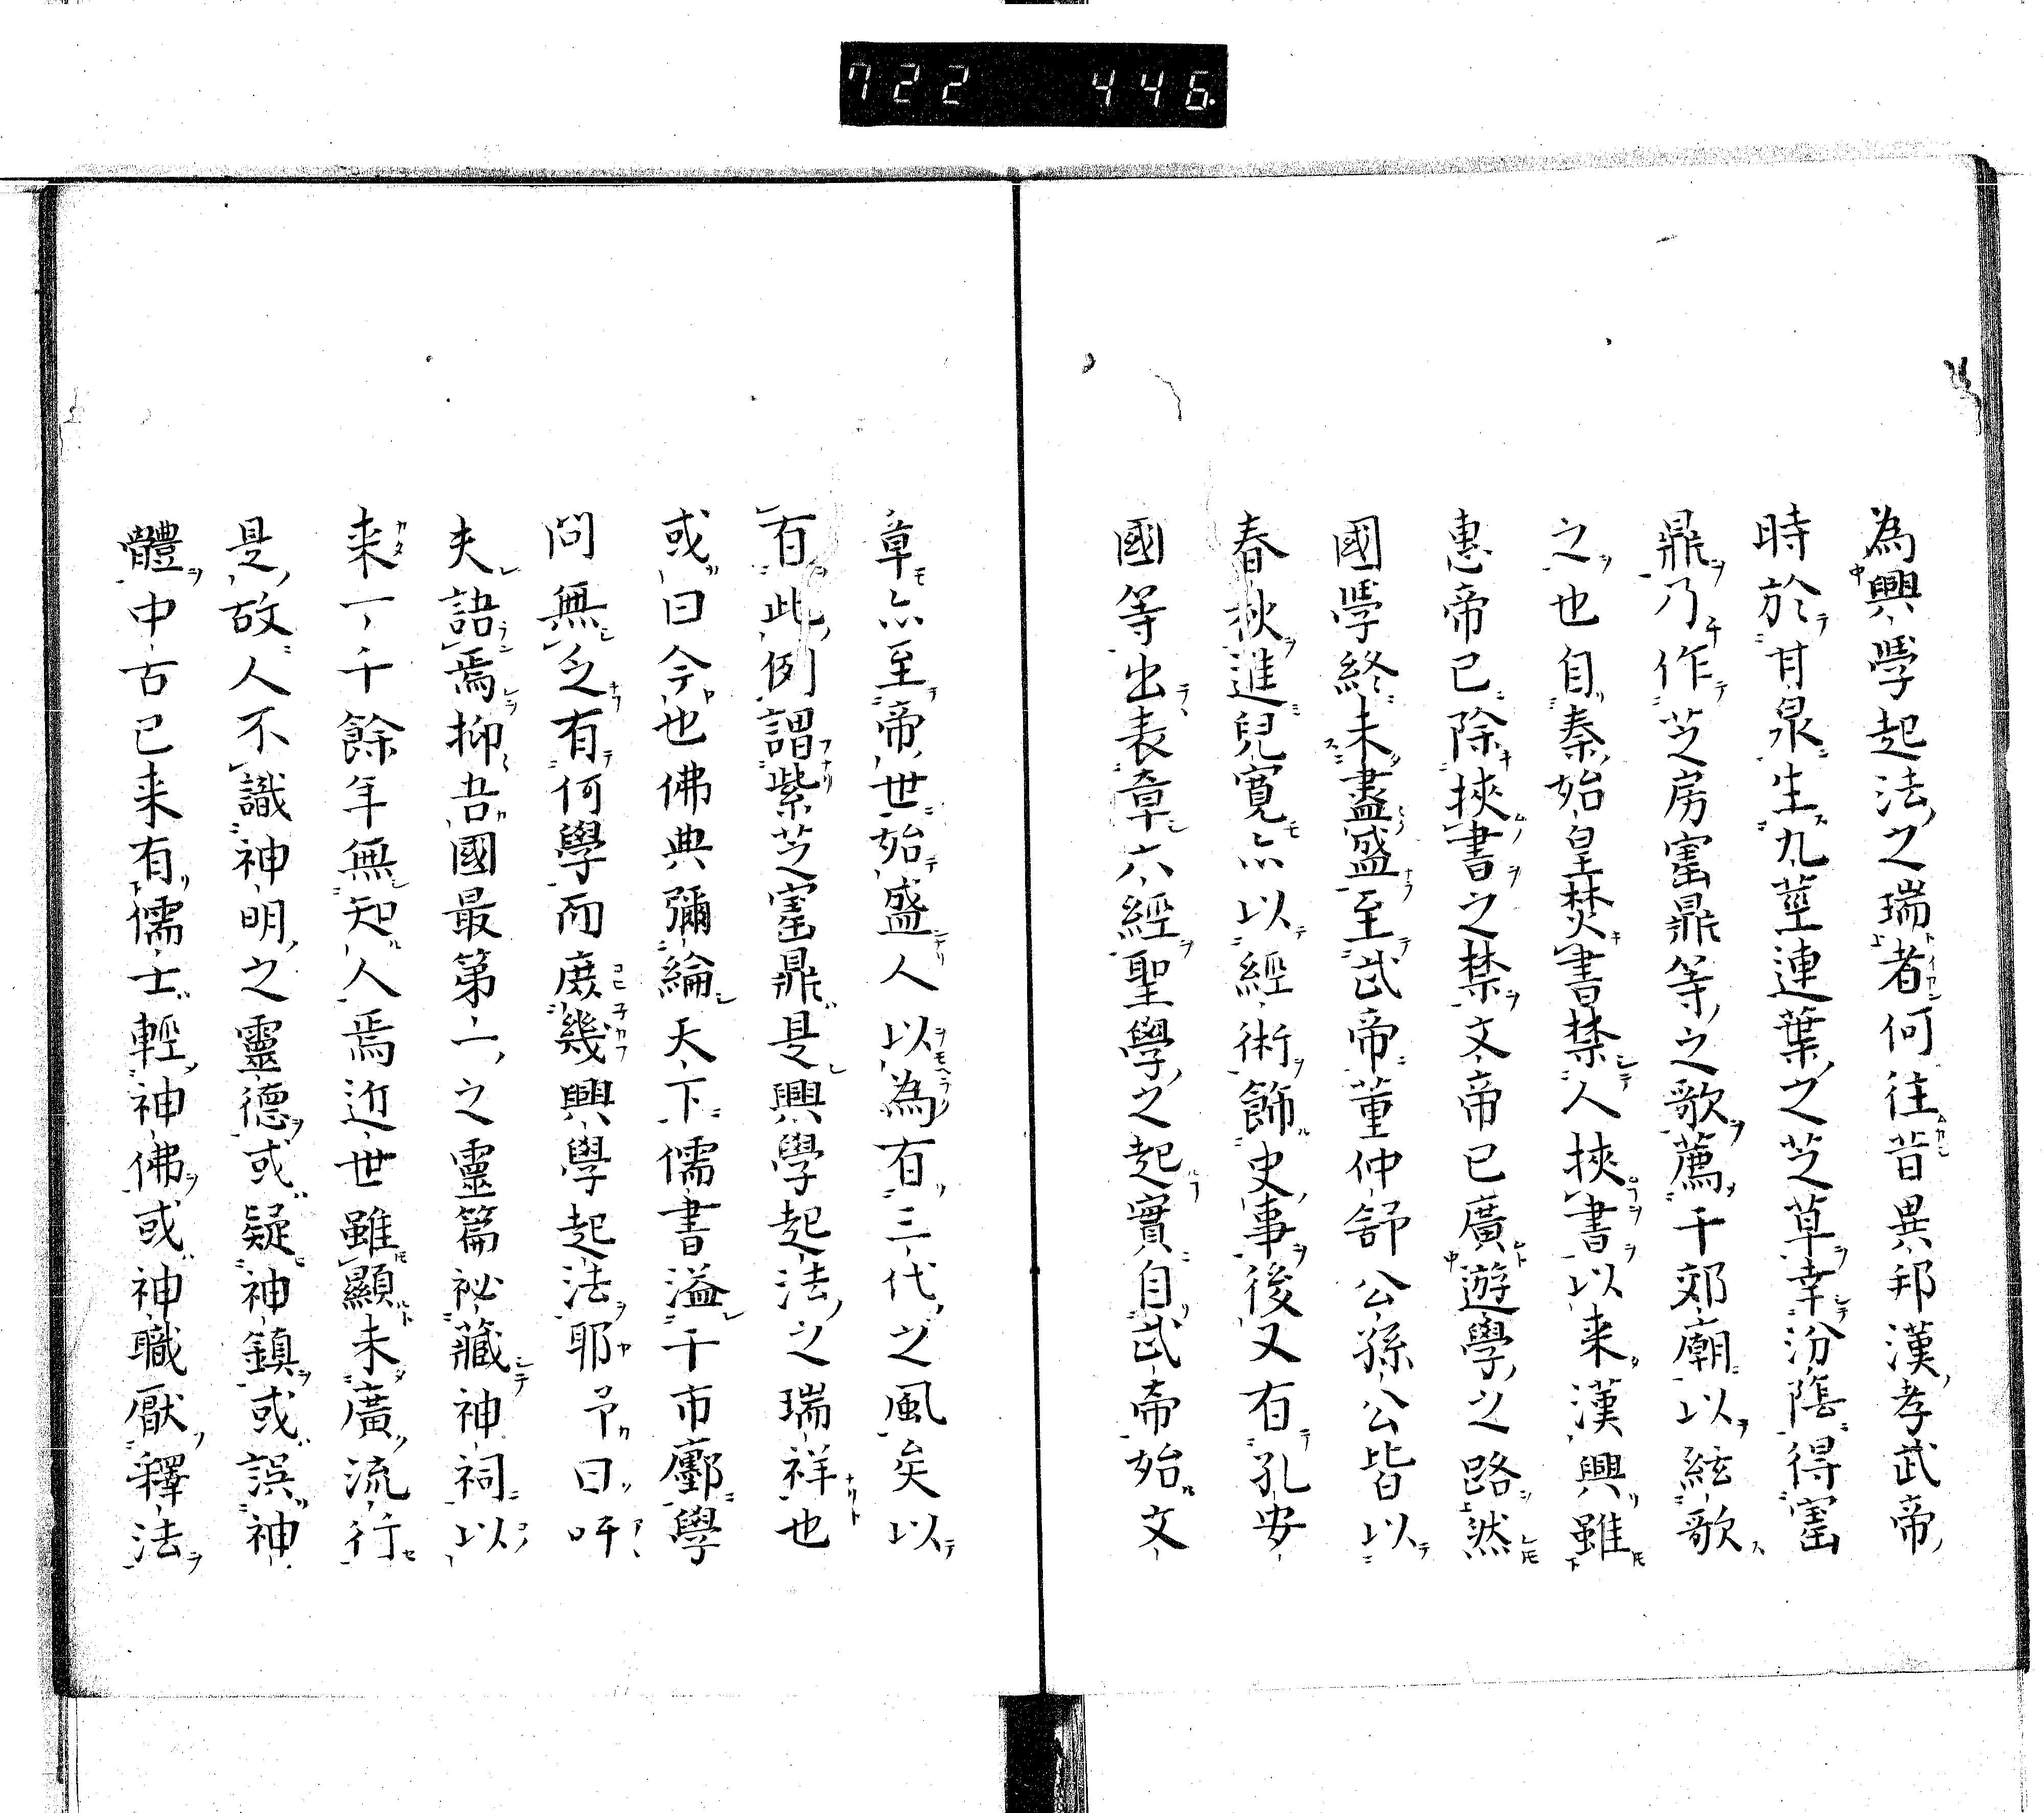 722 446
為興學起法之瑞者何往昔異邦漢孝武帝
時於甘泉生九莖連葉之芝草幸汾隂得寶
鼎乃作芝房寶鼎等之歌薦干郊廟以絃歌
之也自秦始皇焚書禁人挾書以来漢興雖
惠帝已除挾書之禁文帝已廣遊學之路然
國學終未盡盛至武帝董仲舒公孫公皆以
春秋進兒寛亦以經術飾史事後又有孔安
國等出表章六經聖學之起實自武帝始文
章亦至帝世始盛人以為有三代之風矣以
有此例謂紫芝寶鼎是興學起法之瑞祥也
或曰今也佛典彌綸天下儒書溢干市鄽學
問無乏有何學而庶幾興學起法耶予曰吁
夫語焉抑吾國最第一之靈篇祕藏神祠以
来一千餘年無知人焉近世雖顯未廣流行
是故人不識神明之靈德或疑神鎮或誤神
體中古已来有儒士輕神佛或神職厭釋法